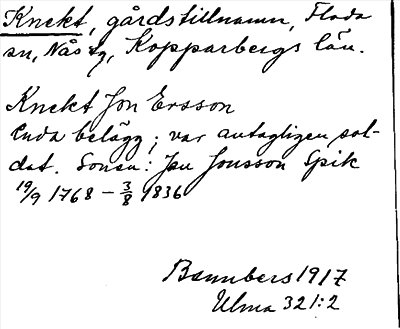 Knekt, gårdstillnamn, Floda
sn, Nås tg, Kopparbergs län.
Knekt Jon Ersson
Enda belägg; var antagligen sol-
dat. Sonen: Jon Jonsson Spik
19/9 1768 – 3/8 1836
1917
Ulma 321:2